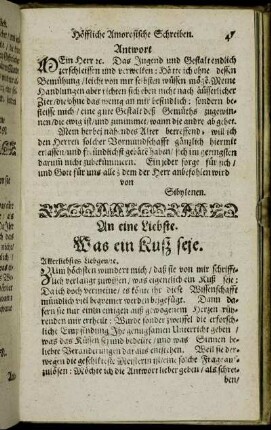 Höffliche Amoresische Schreiben. 4
Antwort.
MEin Herr ꝛc. Das Jugend und Gestalt endlich
zerschleissen und verwelken: Hätte ich ohne dessen
Bemühung / leicht von mir selbsten wissen mögen. Meine
Handlungen aber richten sich eben nicht nach äusserlicher
Zier / die ohne das wenig an mir befindlich: sondern be-
fleisse mich / eine gute Gestalt deß Gemüths zugewin-
nen / die ewig ist / und nimmer wann die andre abgehet.
Mein herbey nahendes Alter betreffend, will ich
den Herren solcher Vormundschafft gänzlich hiermit
erlassen und freundlichst gebeten haben / sich im geringsten
darum nicht zubekümmern. Ein jeder sorge für sich /
und Gott für uns alle: dem der Herr anbefohlen wird
von
Sibyllenen.
An eine Liebste.
Was ein Kuß seje.
Allerliebstes Liebgen ꝛc.
ZUm höchsten wundert mich / daß sie von mir schrifft-
lich verlangt zuwissen / was eigenlich ein Kuß seie:
Da ich doch vermeine / es könte ihr diese Wissenschafft
mündlich viel bequemer werden beigefügt. Dann da-
fern sie nur ein einigen auß gewogenem Hertzen her-
rürenden mir ertheilt: Würde sonder zweiffel die erfrösch-
liche Empfindung Ihr genugsamen Unterricht geben /
was das Küssen sey und bedeute / und was Sinnen be-
liebter Veränderungen daraus entstehen. Weil sie der-
wegen die geschickteste Meisterin ist eine solche Frage auf-
zulösen: Möchte ich die Antwort lieber geben / als schrei-
ben /